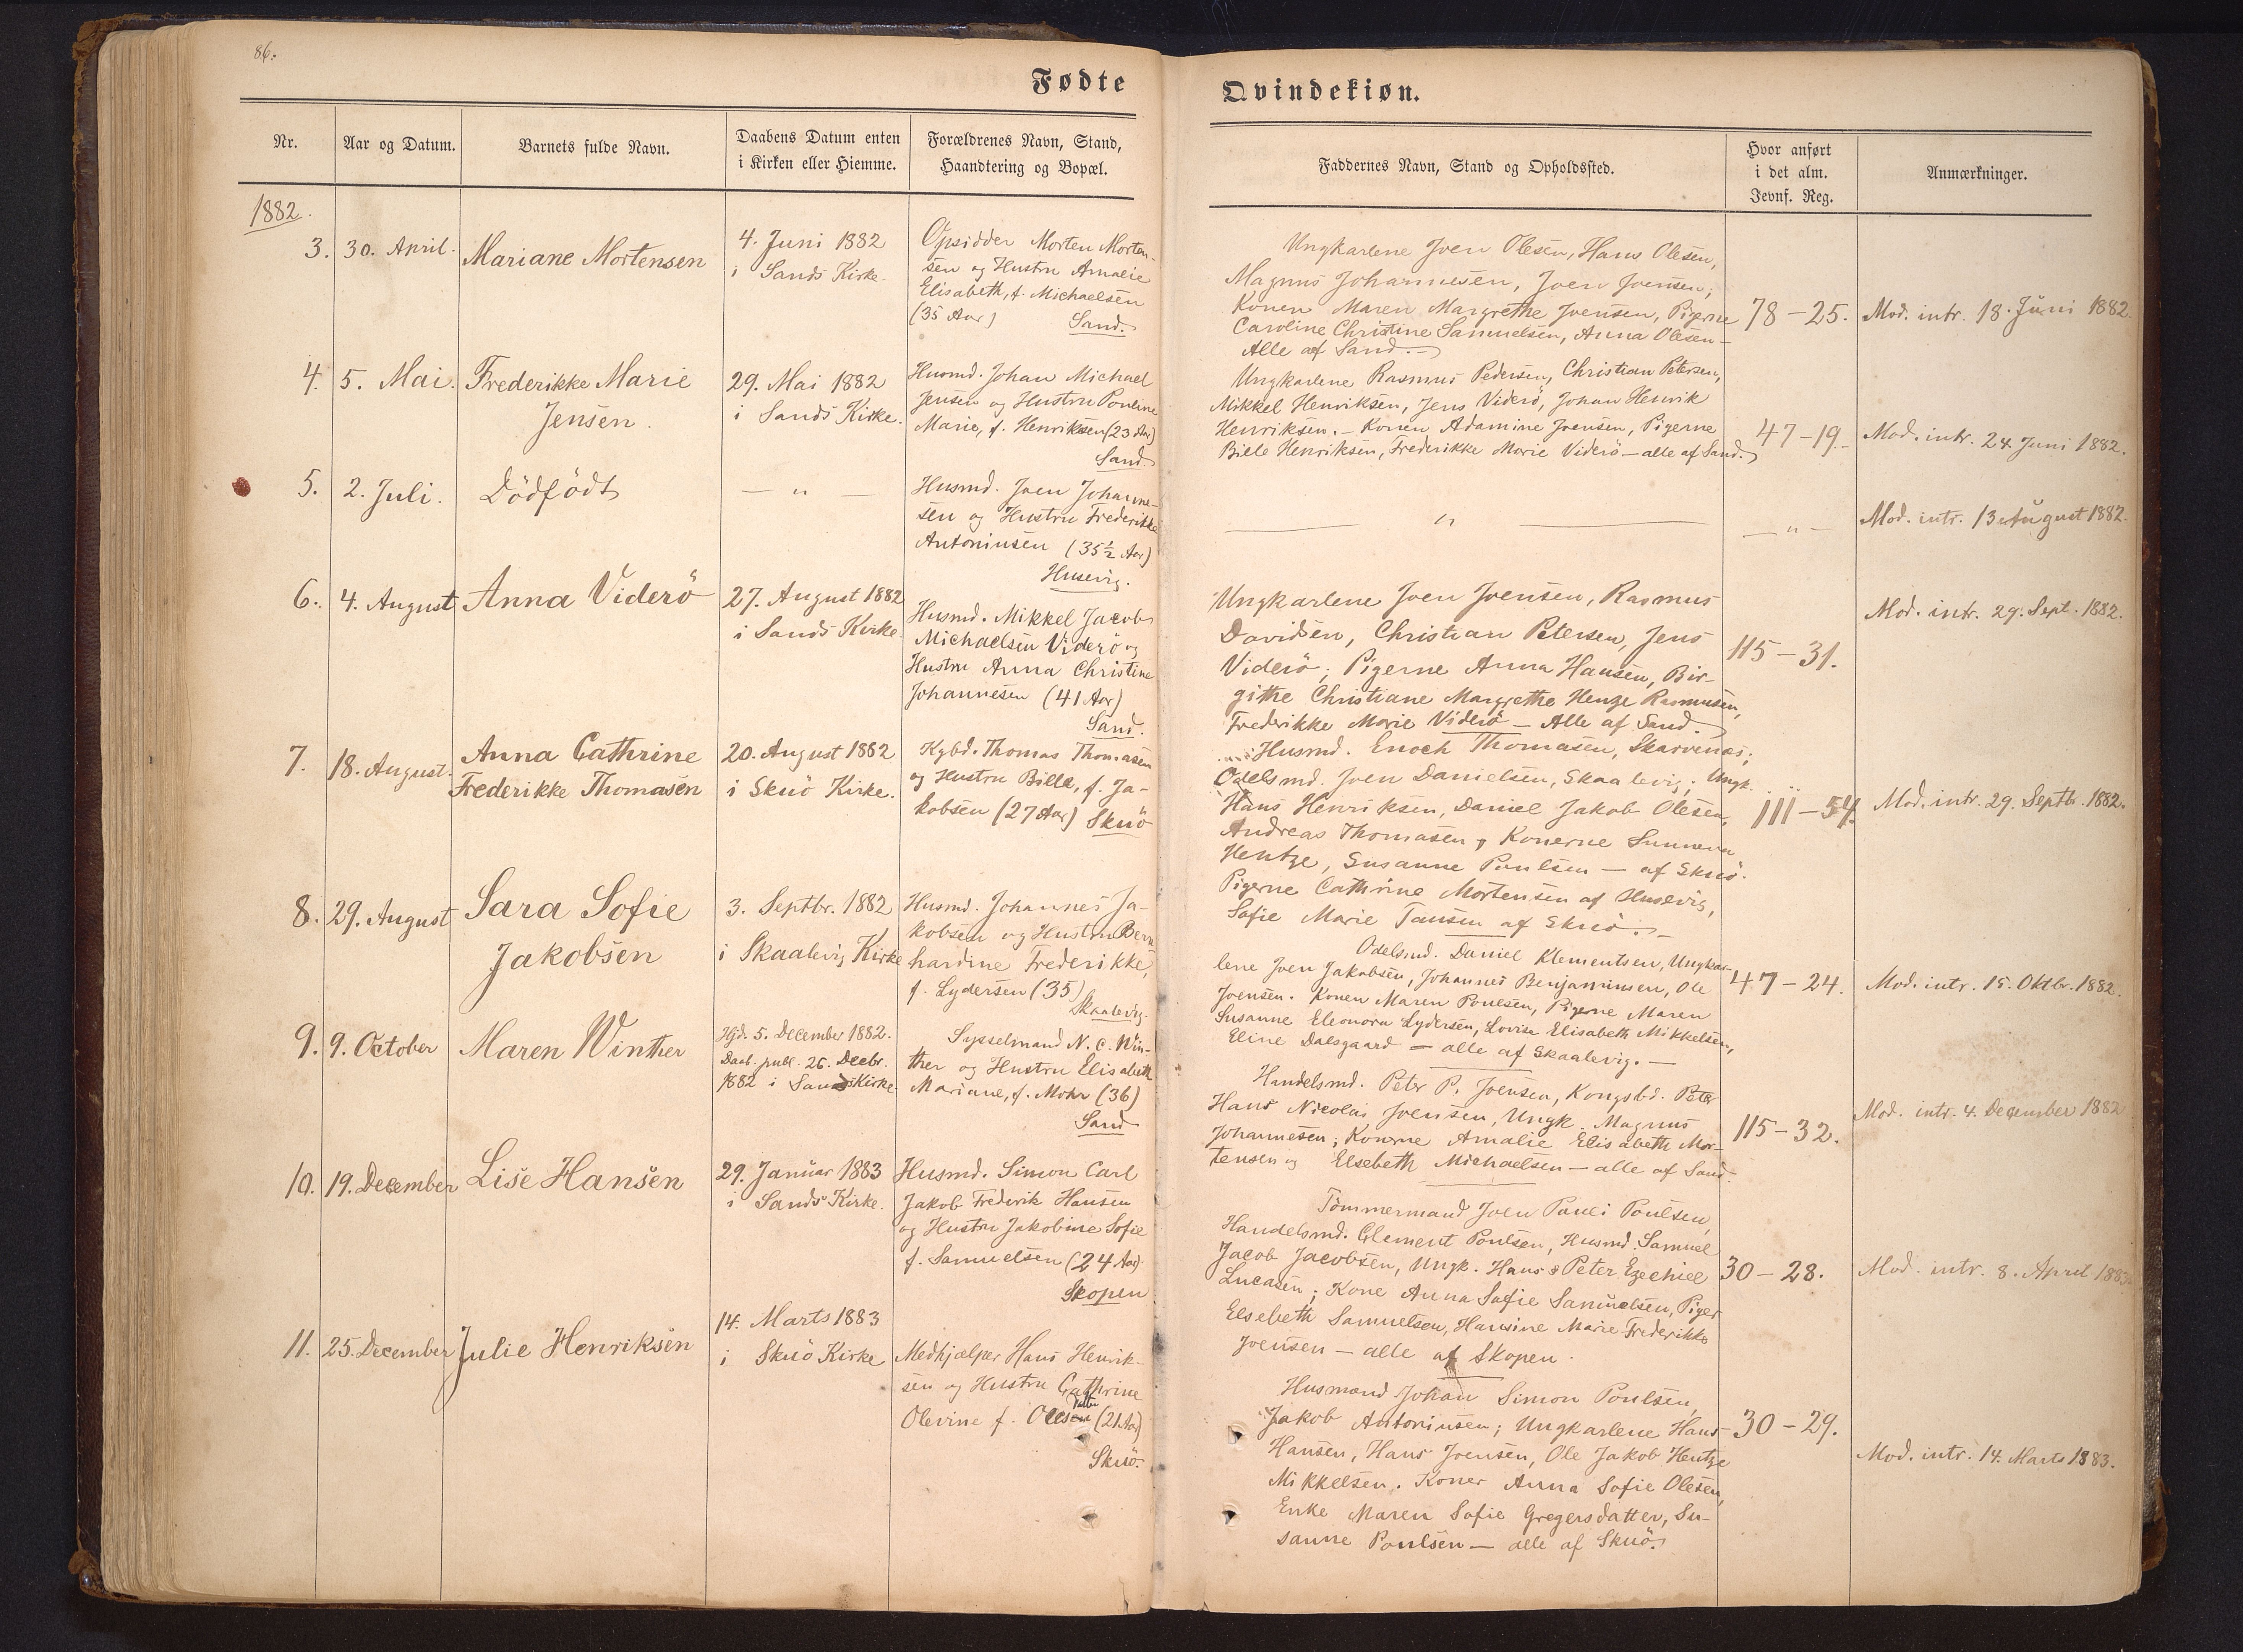 86.
Fødte
Qvindekiøn.
Nr.
Aar og Datum.
Barnets fulde Navn.
Daabens Datum enten
i Kirken eller Hiemme.
Forældrenes Navn, Stand,
Haandtering og Bopæl.
Faddernes Navn, Stand og Opholdssted.
Hvor anført
i det alm.
Jevnf. Reg.
Anmærkninger.
1882.
3.
30. April.
Mariane Mortensen
4. Juni 1882
i Sands Kirke.
Opsidder Morten Morten-
sen og Hustru Amalie
Elisabeth, f. Michaelsen
(35 Aar) Sand.
Ungkarlene Joen Olesen, Hans Olesen,
Magnus Johannesen, Joen Joensen;
Konen Maren Margrethe Joensen, Pigerne
Caroline Christine Samuelsen, Anna Olesen –
Alle af Sand. –
78 – 25.
Mod. intr. 18. Juni 1882.
4.
5. Mai.
Frederikke Marie
Jensen.
29. Mai 1882
i Sands Kirke.
Husmd. Johan Michael
Jensen og Hustru Pouline
Marie, f. Henriksen (23 Aar)
Sand.
Ungkarlene Rasmus Pedersen, Christian Petersen,
Mikkel Henriksen, Jens Viderö, Johan Henrik
Henriksen. – Konen Adamine Joensen, Pigerne
Bille Henriksen, Frederikke Marie Viderö – alle af Sand.
47 – 19.
Mod. intr. 24. Juni 1882.
5.
2. Juli.
Dödfödt
— " —
Husmd. Joen Johanne-
sen og Hustru Frederikke
Antoniusen (35 ½ Aar)
Husevig.
— " —
— " —
Mod. intr. 13 August 1882.
6.
4. August
Anna Viderö
27. August 1882
i Sands Kirke.
Husmd. Mikkel Jacob
Michaelsen Viderö og
Hustru Anna Christine
Johannesen (41 Aar)
Sand.
Ungkarlene Joen Joensen, Rasmus
Davidsen, Christian Petersen, Jens
Viderö; Pigerne Anna Hansen, Bir-
githe Christiane Margrethe Hentze Rasmusen,
Frederikke Marie Viderö – Alle af Sand.
115 – 31.
Mod. intr. 29. Sept. 1882.
7.
18. August.
Anna Cathrine
Frederikke Thomasen
20. August 1882
i Skuö Kirke.
Kgbd. Thomas Thomasen
og Hustru Bille, f. Ja-
kobsen (27 Aar) Skuö
Husmd. Enoch Thomasen, Skarvenæs;
Odelsmd. Joen Danielsen, Skaalevig; Ungk.
Hans Henriksen, Daniel Jakob Olesen,
Andreas Thomasen, Konerne Sunneva
Hentze, Susanne Poulsen – af Skuö.
Pigerne Cathrine Mortensen af Husevig,
Sofie Marie Tausen af Skuö. –
111 – 54.
Mod. intr. 29. Septbr. 1882.
8.
29. August
Sara Sofie
Jakobsen
3. Septbr. 1882
i Skaalevig Kirke
Husmd. Johannes Ja-
kobsen og Hustru Bern-
hardine Frederikke,
f. Lydersen (35)
Skaalevig.
Odelsmd. Daniel Klementsen, Ungkar-
lene Joen Jakobsen, Johannes Benjaminsen, Ole
Joensen. Konen Maren Poulsen, Pigerne Maren
Susanne Eleonora Lydersen, Lovise Elisabeth Mikkelsen,
Eline Dalsgaard – alle af Skaalevig. –
47 – 24.
Mod. intr. 15. Oktbr. 1882.
9.
9. October
Maren Winther
Hjd. 5. December 1882.
Daab. publ. 26. Decbr.
1882 i Sands Kirke.
Sysselmand N. C. Win-
ther og Hustru Elisabeth
Mariane, f. Mohr (36)
Sand
Handelsmd. Peter P. Joensen, Kongsbd. Peter
Hans Nicolai Joensen, Ungk. Magnus
Johannesen; Konerne Amalie Elisabeth Mor-
tensen og Elsebeth Michaelsen – alle af Sand.
115 – 32.
Mod. intr. 4. December 1882
10.
19. December
Lise Hansen
29. Januar 1883
i Sands Kirke.
Husmd. Simon Carl
Jakob Frederik Hansen
og Hustru Jakobine Sofie
f. Samuelsen (24 Aar)
Skopen
Tömmermand Joen Pauli Poulsen,
Handelsmd. Clement Poulsen, Husmd. Samuel
Jacob Jacobsen, Ungk. Hans Peter Ezechiel
Lucasen; Kone Anna Sofie Samuelsen, Piger
Elsebeth Samuelsen, Hansine Marie Frederikke
Joensen – alle af Skopen.
30 – 28.
Mod. intr. 8. April 1883
11.
25. December
Julie Henriksen
14. Marts 1883
i Skuö Kirke
Medhjælper Hans Henrik-
sen og Hustru Cathrine
Olevine f. Olesen (21 Aar)
Skuö.
Husmand Johan Simon Poulsen,
Jakob Antoniusen; Ungkarlene Hans
Hansen, Hans Joensen, Ole Jakob Hentze
Mikkelsen. Koner Anna Sofie Olesen,
Enke Maren Sofie Gregersdatter, Su-
sanne Poulsen – alle af Skuö.
30 – 29.
Mod. intr. 14. Marts 1883.